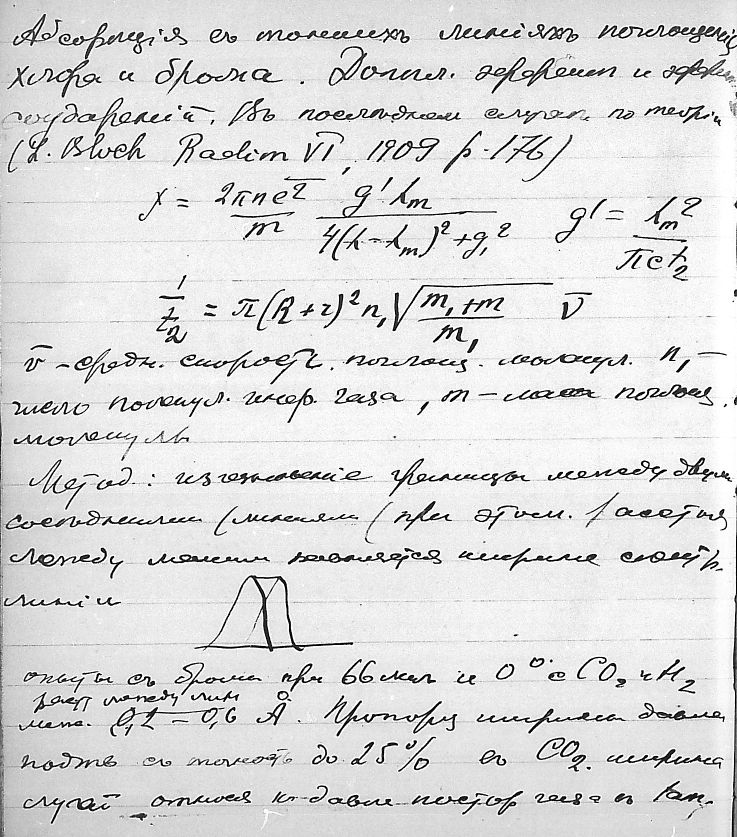 Абсорпція въ тонкихъ линіяхъ поглощенія
хлора и брома. Доппл. эффект и эффект
соударений. Въ последнем случае по теоріи
(L. Bloch Radium VI, 1909 p. 176)
χ = 2πne²/m g'λm/4(λ-λm)²+g₁² g' = λm²/πct₂
1/t₂ = π(R+r)² n₁ √(m₁+m/m₁) v̅
v̅ - средн. скорость. поглощ. молекул. n₁ -
число молекул. инер. газа, m - масса поглощ.
молекулы
Метод: исчезновение границы между двумя
соседними (линиями (при этом. расстоя
между ними равняется ширине спектр.
линіи
опыты съ бромом при 66 мм и 0° с CO₂ и H₂
расст между лин
меж. 0,2 - 0,6 Å. Пропорц ширины давле
подтв съ точность до 25% въ CO₂. ширина
случай относя к давле постор газа в